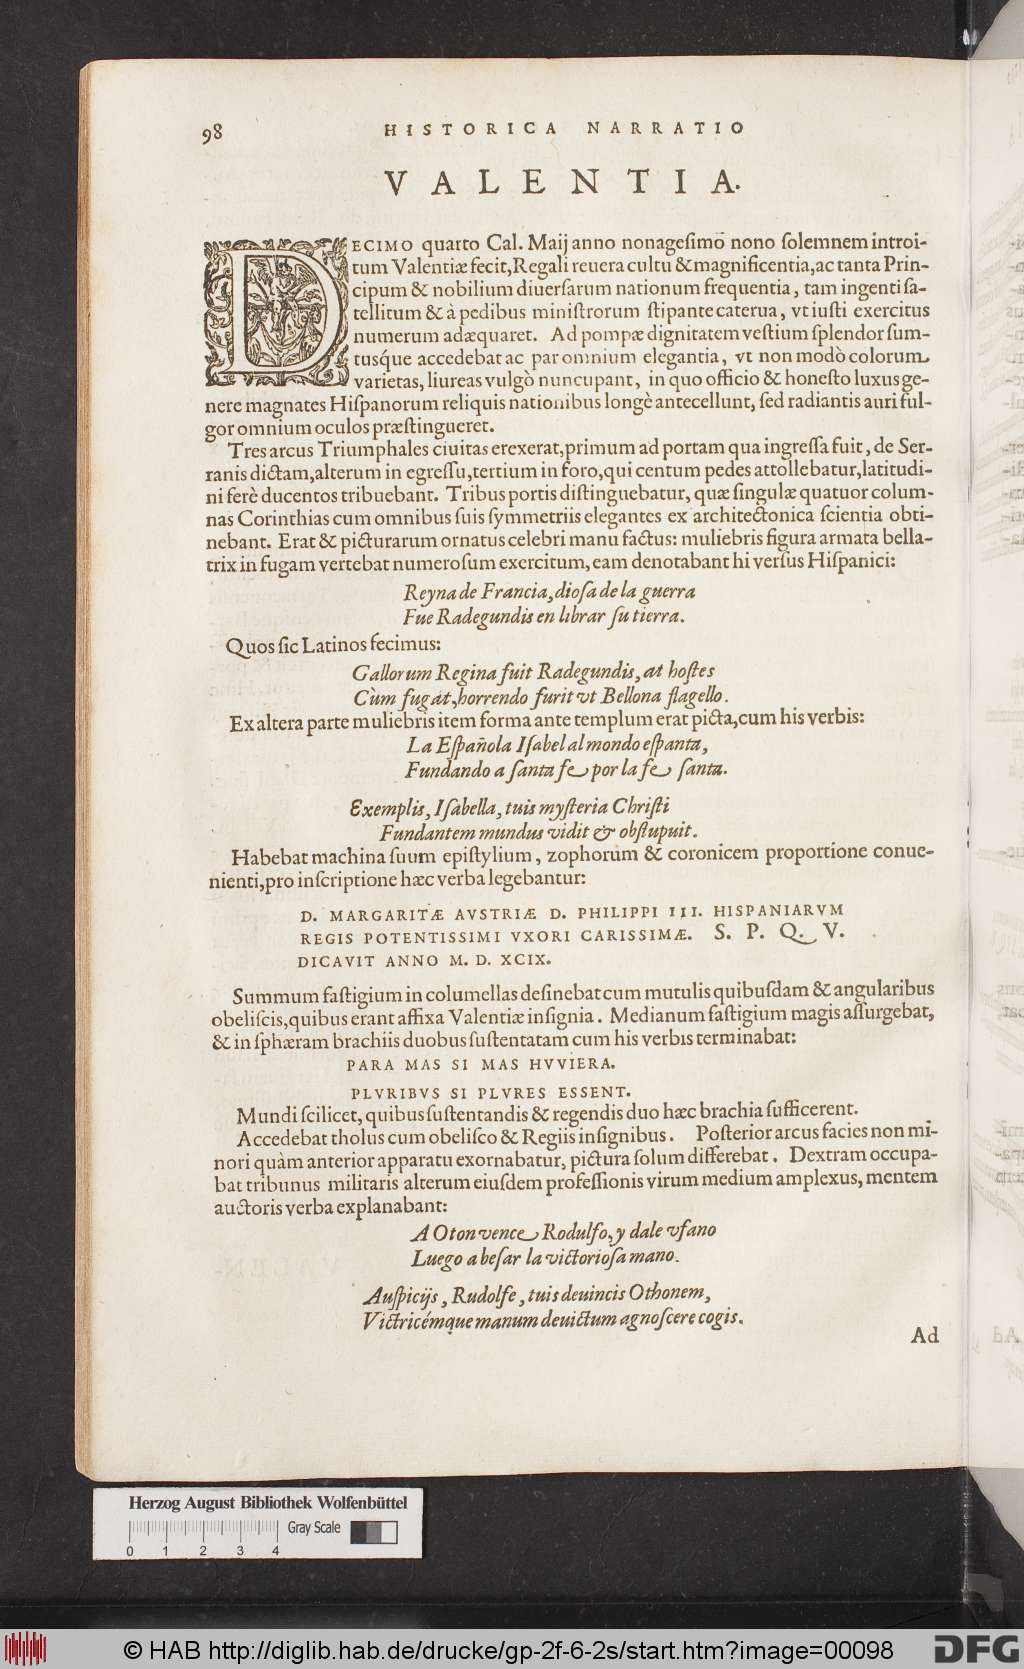 98 HISTORICA NARRATIO
VALENTIA.
DECIMO quarto Cal. Maij anno nonagesimõ nono solemnem introi-
tum Valentiæ fecit, Regali reuera cultu & magnificentia, ac tanta Prin-
cipum & nobilium diuersarum nationum frequentia, tam ingenti sa-
tellitum & à pedibus ministrorum stipante caterua, vt iusti exercitus
numerum adæquaret. Ad pompæ dignitatem vestium splendor sum-
tusq́ue accedebat ac par omnium elegantia, vt non modò colorum
varietas, liureas vulgò nuncupant, in quo officio & honesto luxus ge-
nere magnates Hispanorum reliquis nationibus longè antecellunt, sed radiantis auri ful-
gor omnium oculos præstingueret.
Tres arcus Triumphales ciuitas erexerat, primum ad portam qua ingressa fuit, de Ser-
ranis dictam, alterum in egressu, tertium in foro, qui centum pedes attollebatur, latitudi-
ni ferè ducentos tribuebant. Tribus portis distinguebatur, quæ singulæ quatuor colum-
nas Corinthias cum omnibus suis symmetriis elegantes ex architectonica scientia obti-
nebant. Erat & picturarum ornatus celebri manu factus: muliebris figura armata bella-
trix in fugam vertebat numerosum exercitum, eam denotabant hi versus Hispanici:
Reyna de Francia, diosa de la guerra
Fue Radegundis en librar su tierra.
Quos sic Latinos fecimus:
Gallorum Regina fuit Radegundis, at hostes
Cùm fugat, horrendo furit vt Bellona flagello.
Ex altera parte muliebris item forma ante templum erat picta, cum his verbis:
La Española Isabel al mondo espanta,
Fundando a santa fe por la fe santa.
Exemplis, Isabella, tuis mysteria Christi
Fundantem mundus vidit & obstupuit.
Habebat machina suum epistylium, zophorum & coronicem proportione conue-
nienti, pro inscriptione hæc verba legebantur:
D. MARGARITÆ AVSTRIÆ D. PHILIPPI III. HISPANIARVM
REGIS POTENTISSIMI VXORI CARISSIMÆ. S. P. Q. V.
DICAVIT ANNO M. D. XCIX.
Summum fastigium in columellas desinebat cum mutulis quibusdam & angularibus
obeliscis, quibus erant affixa Valentiæ insignia. Medianum fastigium magis assurgebat,
& in sphæram brachiis duobus sustentatam cum his verbis terminabat:
PARA MAS SI MAS HVVIERA.
PLVRIBVS SI PLVRES ESSENT.
Mundi scilicet, quibus sustentandis & regendis duo hæc brachia sufficerent.
Accedebat tholus cum obelisco & Regiis insignibus. Posterior arcus facies non mi-
nori quàm anterior apparatu exornabatur, pictura solum differebat. Dextram occupa-
bat tribunus militaris alterum eiusdem professionis virum medium amplexus, mentem
auctoris verba explanabant:
A Oton vence Rodulfo, y dale vfano
Luego a besar la victoriosa mano.
Auspicijs, Rudolfe, tuis deuincis Othonem,
Victricémque manum deuictum agnoscere cogis.
Ad
Herzog August Bibliothek Wolfenbüttel
Gray Scale
0 1 2 3 4
© HAB http://diglib.hab.de/drucke/gp-2f-6-2s/start.htm?image=00098
DFG